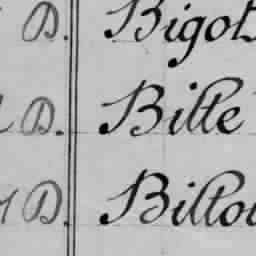 D. Bigot
D. Bille
D. Billo